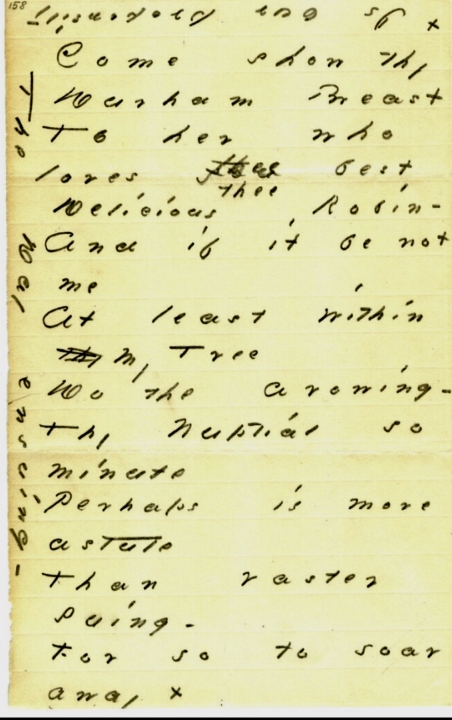 158
Come show thy
Durham Breast
To her who
loves thee best
thee
Delicious Robin -
And if it be not
me
At least within
Thy my Tree
Do the avowing -
Thy Nuptial so
minute
Perhaps is more
astute
Than vaster
suing -
For so to soar
away x
x Is our propensity
The Day ensuing -